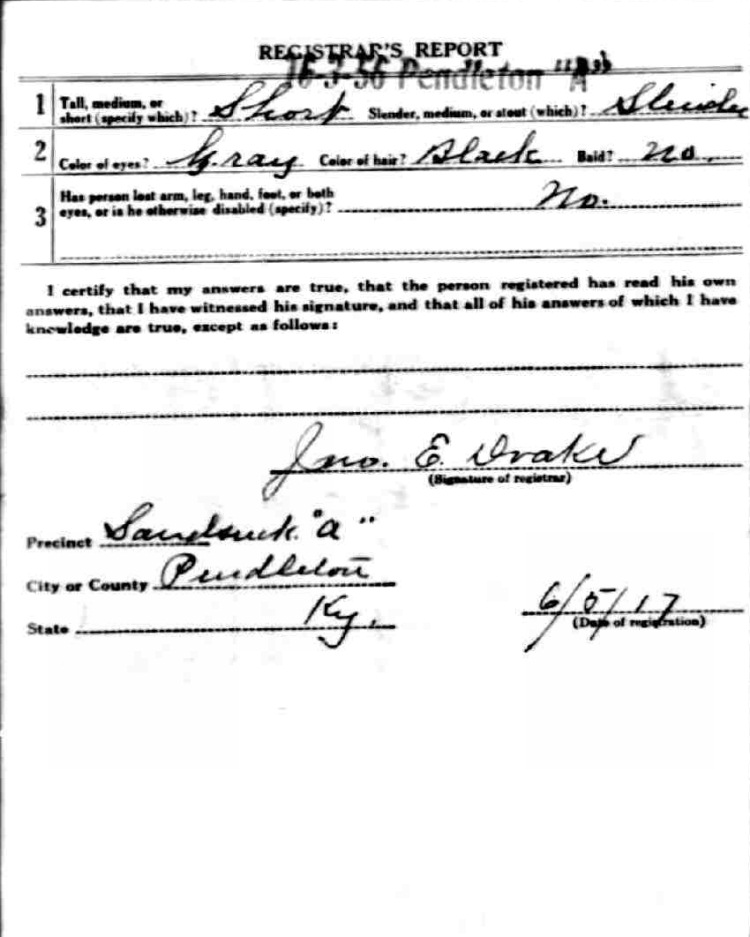 REGISTRAR'S REPORT
16-3-56 Pendleton "A"
1 Tall, medium, or short (specify which)? Short Slender, medium, or stout (which)? Slender
2 Color of eyes? Gray Color of hair? Black Bald? No.
3 Has person lost arm, leg, hand, foot, or both
eyes, or is he otherwise disabled (specify)? No.
I certify that my answers are true, that the person registered has read his own
answers, that I have witnessed his signature, and that all of his answers of which I have
knowledge are true, except as follows:
Jno. E. Drake
(Signature of registrar)
Precinct "a"
City or County Pendleton
State Ky.
6/5/17
(Date of registration)